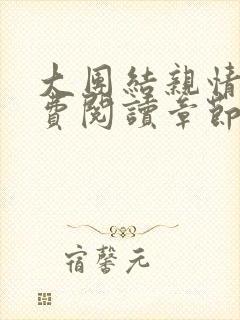 大团結親情
費閱讀章節
宿馨元